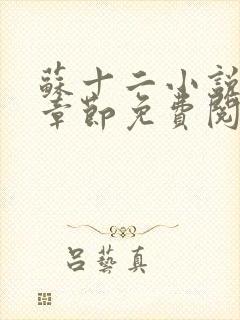 蘇十二小說
章節免費閱
呂藝真